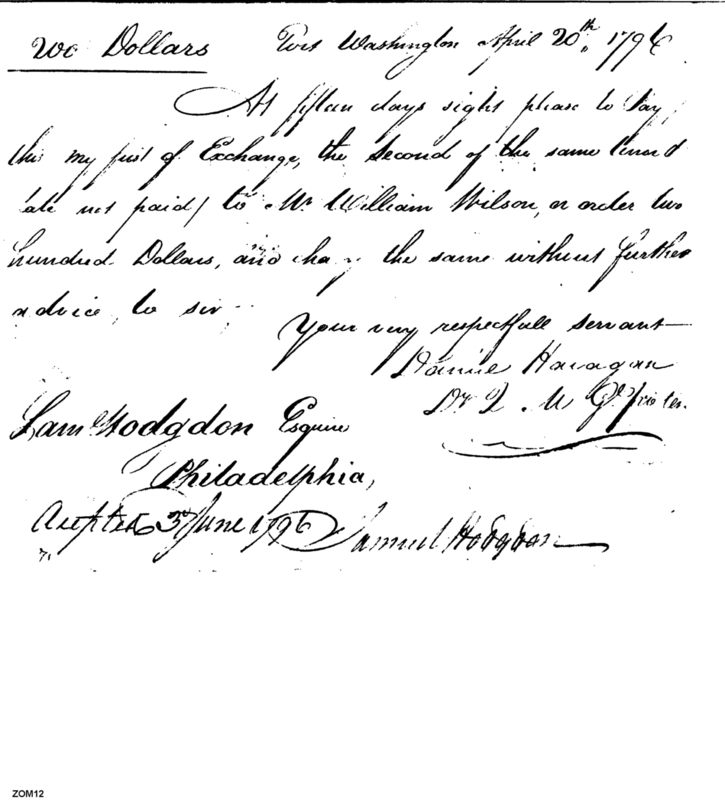 200 Dollars Fort Washington April 20th. 1796
At fifteen days sight please to Pay,
this my first of Exchange, the Second of the same tenor &
date not paid/ to Mr William Wilson, or order two
hundred Dollars, and charge the same without further
advice, to sir
Your very respectfull servant
Daniel Haragan
D Q M Gl
Saml Hodgdon Esquire
Philadelphia,
Accepted 3d June 1796 Samuel Hodgdon
ZOM12